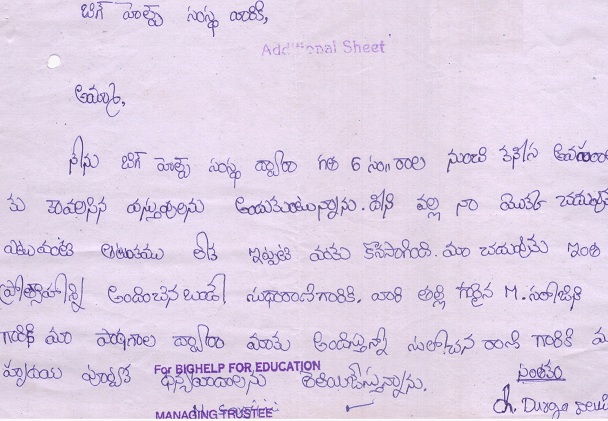 బిగ్ హెల్ప్ సంస్థ వారికి,
Additional Sheet
అమ్మా,
నేను బిగ్ హెల్ప్ సంస్థ ద్వారా గత 6 సం॥రాల నుంచి కనీస అవసరాల
కు కావలసిన వస్తువులను అందుకుంటున్నాను. దీని వల్ల నా యొక్క చదువుకు
ఎటువంటి ఆటంకము లేక ఇప్పటి వరకు కొనసాగింది. మా చదువుకు ఇంత
ప్రోత్సాహాన్ని అందించిన చాంద్ సుధారాణిగారికి. వారి తల్లి గారైన M. సరోజిని
గారికి మా పాఠశాల ద్వారా మాకు అందిస్తున్న సులోచన రాణి గారికి మా
హృదయ పూర్వక ధన్యవాదాలను తెలియజేస్తున్నాను.
For BIGHELP FOR EDUCATION
MANAGING TRUSTEE
సంతకం
ch. Durga